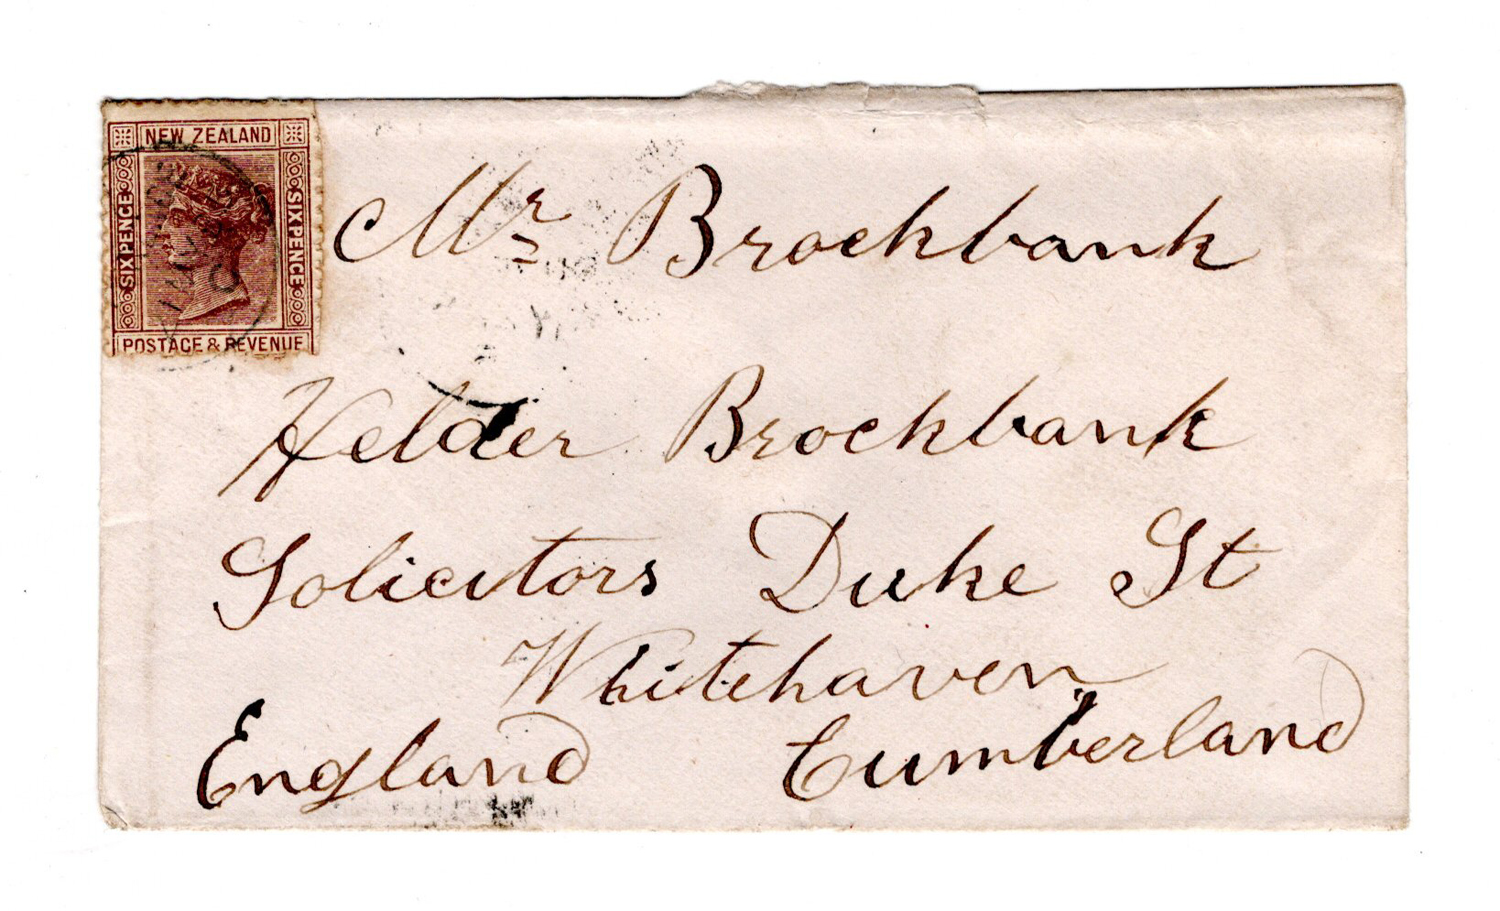 NEW ZEALAND
SIXPENCE
SIXPENCE
POSTAGE & REVENUE
Mr Brockbank
Helder Brockbank
Solicitors Duke St
Whitehaven
England Cumberland